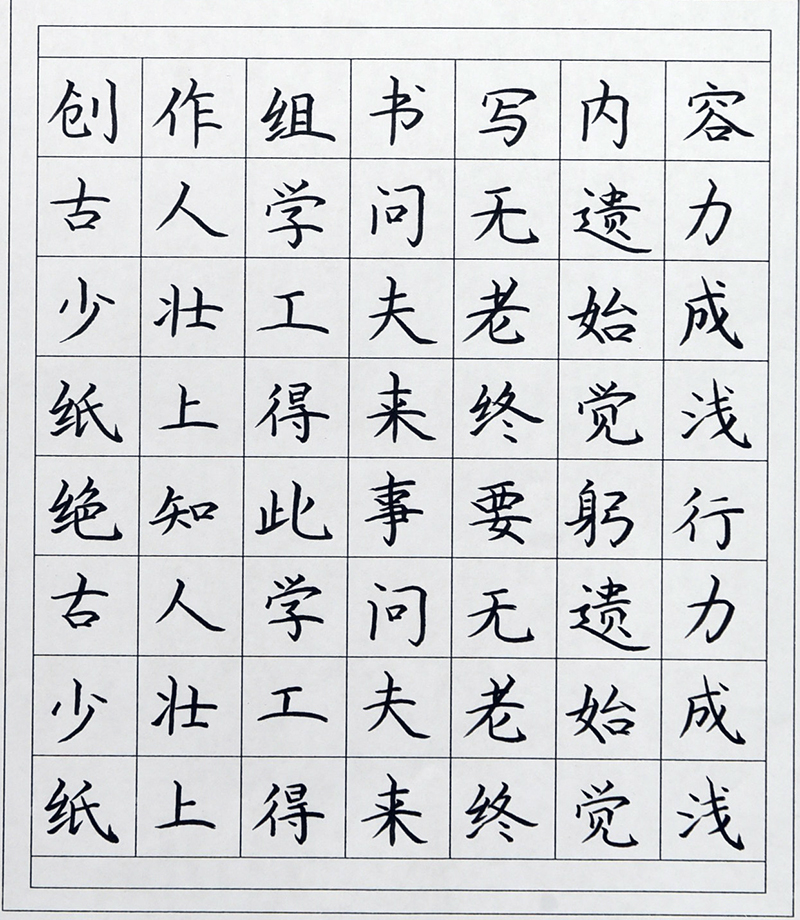 创作组书写内容
古人学问无遗力
少壮工夫老始成
纸上得来终觉浅
绝知此事要躬行
古人学问无遗力
少壮工夫老始成
纸上得来终觉浅